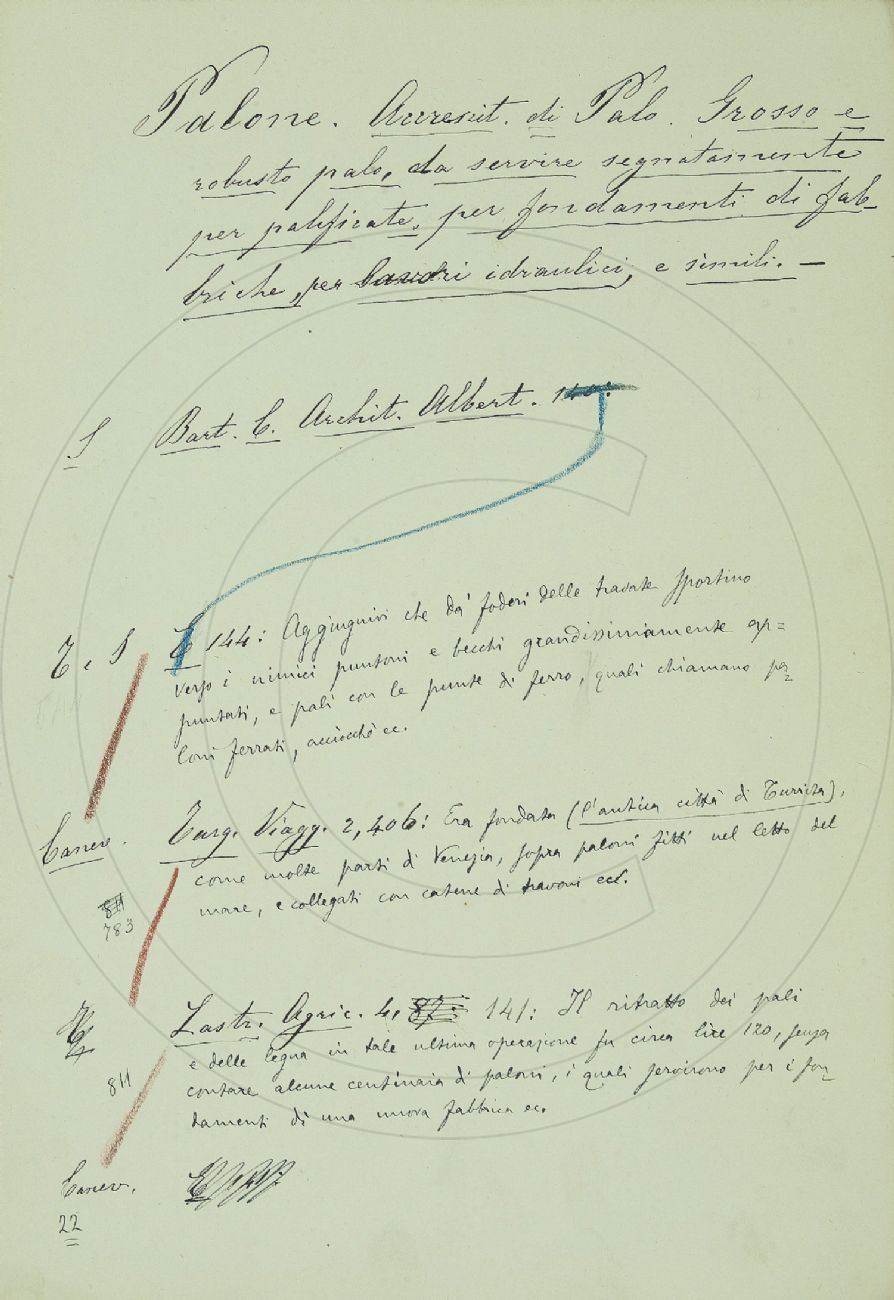 Palone. Accrescit. di Palo. Grosso e
robusto palo, da servire segnatamente
per palificate, per fondamenti di fab-
briche, per lavori idraulici, e simili. —
S Bart. C. Archit. Albert.
T. e S E 144: Aggiugnivi che da' foderi delle travate sportino
verso i nimici puntoni e becchi grandissimamente ap=
puntati, e pali con le punte di ferro, quali chiamano pa-
loni ferrati, acciocchè ec.
Canev. Targ. Viagg. 2,406: Era fondata (l'antica città di Turrita),
come molte parti di Venezia, sopra paloni fitti nel letto del
mare, e collegati con catene di travoni ecc.
811
783
Lastr. Agric. 4, 87: 141: Il ritratto dei pali
e delle legna in tale ultima operazione fu circa lire 120, senza
811 contare alcune centinaia di paloni, i quali servirono per i fon-
damenti di una nuova fabbrica ec.
Canev.
22